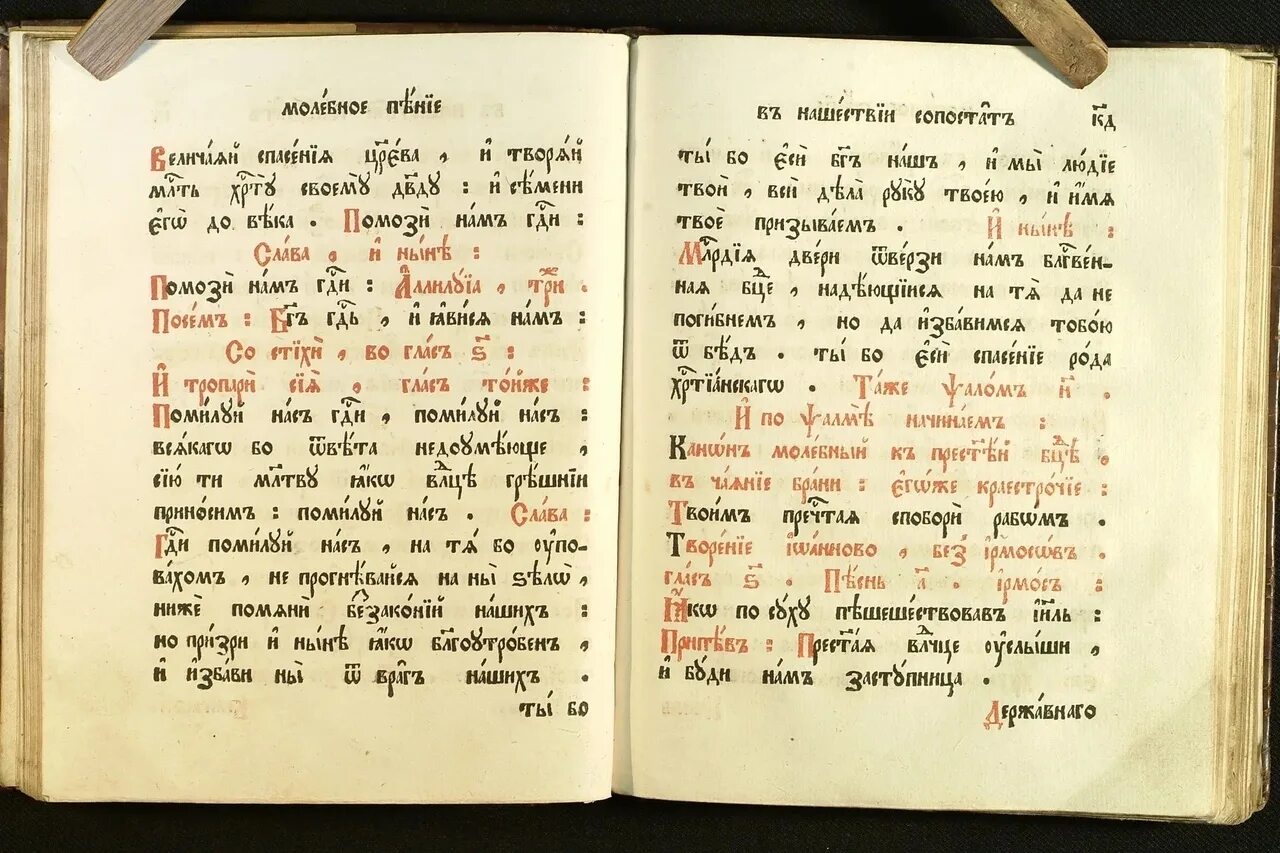 моле́бное пѣ́нїе
Велича́ѧй спасе́нїѧ цр҃е́ва , и҆ творѧ́й
млⷭ҇ть хрⷭ҇ту̀ своемꙋ̀ дв҃дꙋ : и҆ сѣ́мени
є҆гѡ̀ до вѣ́ка . Помозѝ на́мъ гдⷭ҇и :
Сла́ва , и҆ ны́нѣ :
Помозѝ на́мъ гдⷭ҇и : А҆ллилꙋ́їа , три́ .
Посе́мъ : Бг҃ъ гдⷭ҇ь , и҆ ꙗ҆ви́сѧ на́мъ :
Со стїхѝ , во гла́съ ѕ҃ :
И҆ тропарѝ сїѧ̀ , гла́съ то́йже :
Поми́лꙋй на́съ гдⷭ҇и , поми́лꙋй на́съ :
всѧ́кагѡ бо ѿвѣ́та недоꙋмѣ́юще ,
сїю̀ ти мл҃твꙋ ꙗ҆́кѡ влⷣцѣ грѣ́шнїи
прино́симъ : поми́лꙋй на́съ . Сла́ва :
Гдⷭ҇и поми́лꙋй на́съ , на тѧ́ бо ᲂу҆пова́-
хомъ , не прогнѣ́вайсѧ на ны̀ ѕѣлѡ̀ ,
нижѐ помѧнѝ беззако́нїй на́шихъ :
но при́зри и҆ ны́нѣ ꙗ҆́кѡ блг҃оꙋтро́бенъ ,
и҆ и҆зба́ви ны̀ ѿ вра̑гъ на́шихъ .
ты́ бо
въ наше́ствїи сопоста̑тъ к҃д
ты́ бо є҆сѝ бг҃ъ на́шъ , и҆ мы̀ лю́дїе
твоѝ , всѝ дѣла̀ рꙋкꙋ̀ твоє́ю , и҆ и҆́мѧ
твоѐ призыва́емъ . И҆ ны́нѣ :
Млⷭ҇рдїѧ двє́ри ѿве́рзи на́мъ блгⷭ҇ве́н-
наѧ бцⷣе , надѣ́ющїисѧ на тѧ̀ да не
поги́бнемъ , но да и҆зба́вимсѧ тобо́ю
ѿ бѣ́дъ . ты́ бо є҆сѝ спасе́нїе ро́да
хрⷭ҇тїа́нскагѡ . Та́же ѱало́мъ н҃ .
И҆ по ѱалмѣ̀ начина́емъ :
Канѡ́нъ моле́бный къ прест҃ѣ́й бцⷣѣ ,
въ ча́ѧнїе бра́ни : є҆гѡ́же краестро́чїе :
Твои̑мъ пречⷭ҇таѧ споборѝ рабѡ́мъ .
Творе́нїе і҆ѡа́нново , без̾ і҆рмосѡ́въ .
гла́съ ѕ҃ . Пѣ́снь а҃ . і҆рмо́съ :
Ꙗ҆́кѡ по сꙋ́хꙋ пѣшеше́ствовавъ і҆и҃ль :
Припѣ́въ : Прест҃а́ѧ влⷣчце ᲂу҆слы́ши ,
и҆ бꙋ́ди на́мъ застꙋ́пница .
Держа́внаго